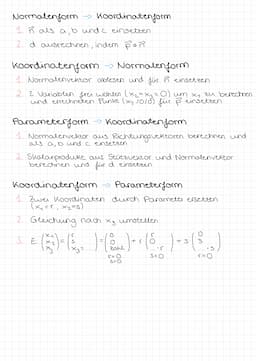 Normalenform → Koordinatenform
1. n⃗ als a, b und c einsetzen
2. d ausrechnen, indem p⃗ * n⃗
Koordinatenform → Normalenform
1. Normalenvektor ablesen und für n⃗ einsetzen
2. 2 Variablen frei wählen (x₂=x₃=0) um x₁ zu berechnen
und errechneten Punkt (x₁/0/0) für p⃗ einsetzen
Parameterform → Koordinatenform
1. Normalenvektor aus Richtungsvektoren berechnen und
als a, b und c einsetzen
2. Skalarprodukt aus Stützvektor und Normalenvektor
berechnen und für d einsetzen
Koordinatenform → Parameterform
1. Zwei Koordinaten durch Parameter ersetzen
(x₁=r, x₂=s)
2. Gleichung nach x₃ umstellen
3. E: (x₁ x₂ x₃) = (r s x₃=) = (0 0 Zahl) + r (r 0 ·r) + s (0 s ·s)
r=0 s=0 s=0 r=0